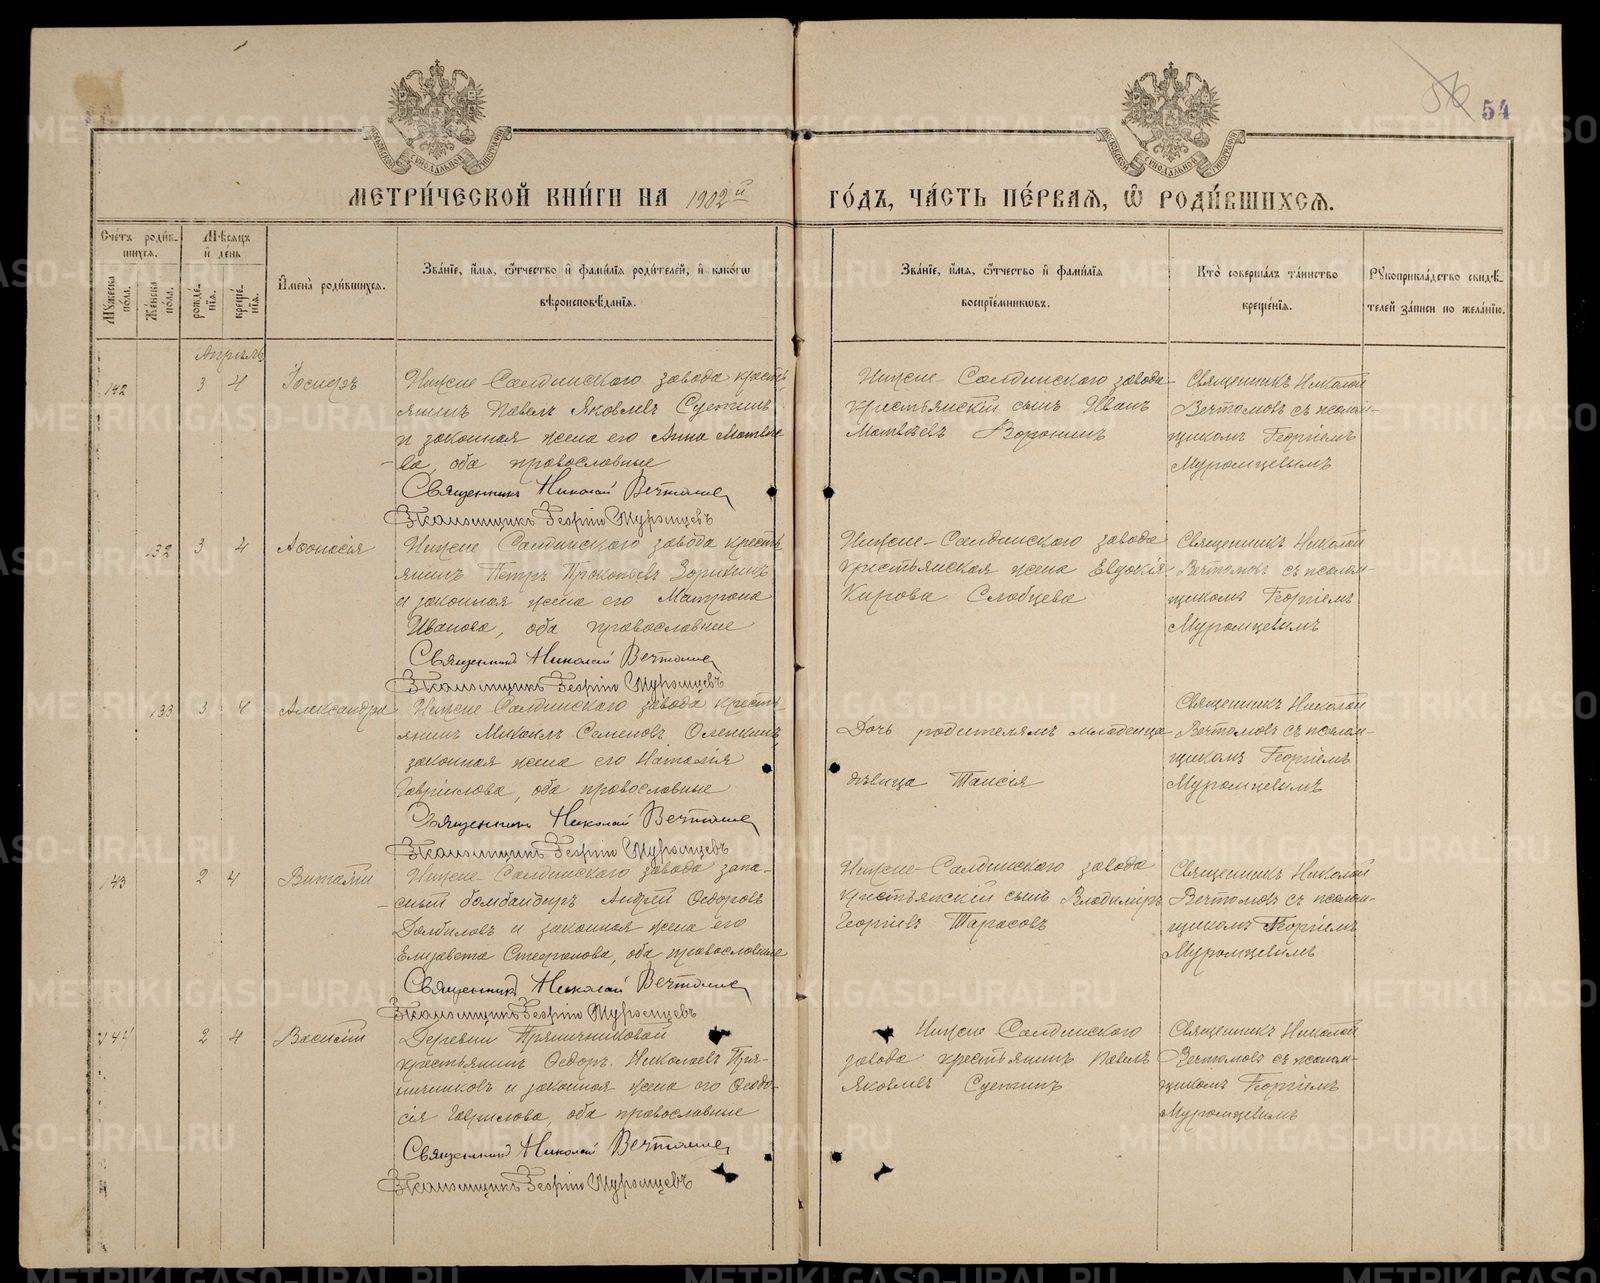 54
МОСКОВСКОЙ СѴНОДАЛЬНОЙ ТИПОГРАФІИ
МОСКОВСКОЙ СѴНОДАЛЬНОЙ ТИПОГРАФІИ
МЕТРИ́ЧЕСКОЙ КНИ́ГИ НА 1902й
ГО́ДЪ, ЧА́СТЬ ПЕ́РВАѦ, Ѡ РОДИ́ВШИХСѦ.
Сче́тъ роди́в-
шихсѧ.
Мѹ́жеска пола.
Же́нска пола.
Мѣ́сѧцъ
и де́нь
рожде́нїѧ.
креще́нїѧ.
Имена̀ роди́вшихсѧ.
Зва́нїе, и́мѧ, ѻ҆́тчество и фами́лїѧ роди́телей, и како́гѡ
вѣроисповѣ́данїѧ.
Зва́нїе, и́мѧ, ѻ҆́тчество и фами́лїѧ
воспрїе́мникѡвъ.
Кто̀ соверша́лъ та́инство
креще́нїѧ.
Рѹкоприкла́дство свидѣ́-
телей за́писи по жела́нїю.
Апрѣль
142 3 4 Іосифъ
Нижне-Салдинскаго завода кресть
янинъ Павелъ Яковлевъ Суетинъ
и законная жена его Анна Матвѣе
ва, оба православные
Священникъ Николай Вечтомов
Псаломщикъ Георгій Муромцевъ
Нижне-Салдинскаго завода
крестьянскій сынъ Иванъ
Матвѣевъ Воронинъ
Священникъ Николай
Вечтомовъ съ псалом-
щикомъ Георгіемъ
Муромцевымъ
132 3 4 Аѳонасія
Нижне Салдинскаго завода кресть
янинъ Петръ Прокопьевъ Зорихинъ
и законная жена его Матрона
Иванова, оба православные
Священникъ Николай Вечтомов
Псаломщикъ Георгій Муромцевъ
Нижне-Салдинскаго завода
крестьянская жена Евдокія
Кирова Слобцева
Священникъ Николай
Вечтомовъ съ псалом-
щикомъ Георгіемъ
Муромцевымъ
133 3 4 Александра
Нижне Салдинскаго завода кресть
янинъ Михаилъ Семеновъ Оленкинъ,
законная жена его Наталія
Гавріилова, оба православные
Священникъ Николай Вечтомов
Псаломщикъ Георгій Муромцевъ
Дочь родителямъ младенца
дѣвица Таисія
Священникъ Николай
Вечтомовъ съ псалом-
щикомъ Георгіемъ
Муромцевымъ
143 2 4 Виталій
Нижне-Салдинскаго завода запа-
сный бомбандиръ Андрей Ѳедоровъ
Долбиловъ и законная жена его
Елизавета Стефанова, оба православные
Священникъ Николай Вечтомов
Псаломщикъ Георгій Муромцевъ
Нижне-Салдинскаго завода
крестьянскій сынъ Владиміръ
Георгіевъ Тарасовъ
Священникъ Николай
Вечтомовъ съ псалом-
щикомъ Георгіемъ
Муромцевымъ
144 2 4 Василій
Деревни Пряничниковой
крестьянинъ Ѳедоръ Николаевъ Пря-
ничниковъ и законная жена его Ѳеодо-
сія Гаврилова, оба православные
Священникъ Николай Вечтомов
Псаломщикъ Георгій Муромцевъ
Нижне Салдинскаго
завода крестьянинъ Павелъ
Яковлевъ Суетинъ
Священникъ Николай
Вечтомовъ съ псалом-
щикомъ Георгіемъ
Муромцевымъ
METRIKI.GASO-URAL.RU